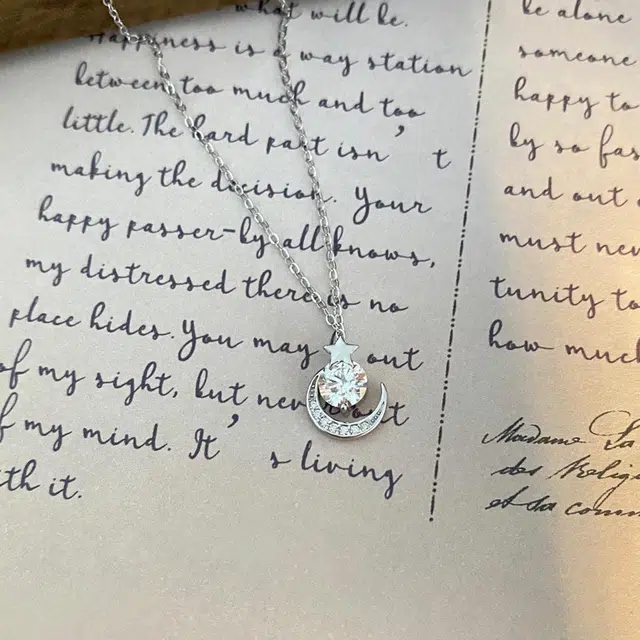 what will be.
Happiness is a way station
between too much and too
little. The hard part isn't
making the decision. Your
happy passer-by all knows,
my distressed there is no
place hides. You may out
of my sight, but never out
of my mind. It's living
with it.
be alone
someone
happy to
by so far
and out
must nev
tunity to
how much
Madame La
des Relig
et sa comm